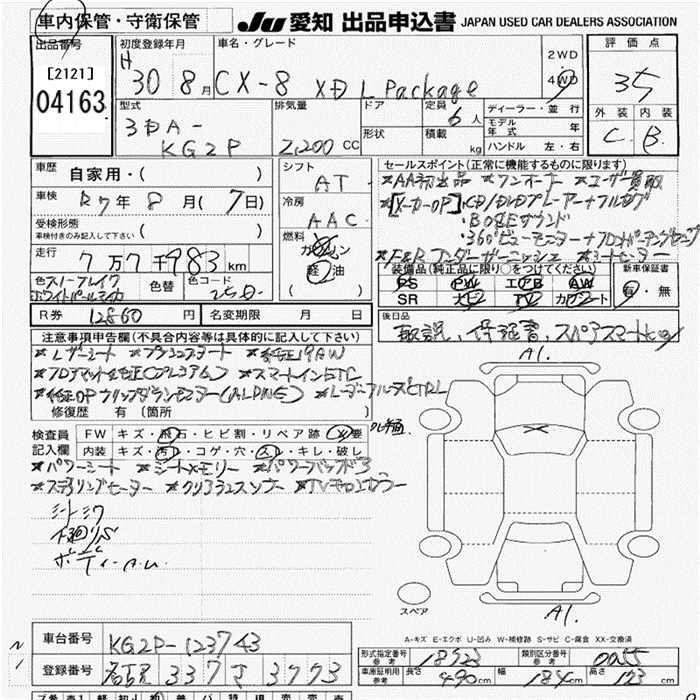 車内保管・守衛保管
JU 愛知 出品申込書 JAPAN USED CAR DEALERS ASSOCIATION
出品番号
[2121]
04163
初度登録年月
H 30 8月
車名・グレード
CX-8 XD L Package
2WD
4WD
評価点
3.5
外装 内装
C B
型式
3DA-
KG2P
排気量
2,200 CC
ドア
形状
定員
6人
積載
kg
ディーラー・並行
モデル年式 年
ハンドル 左・右
車歴
自家用・( )
車検
R7年 8月 (7日)
受検形態
車検付きのみ記入して下さい ( )
走行
7万7千983km
色 スノーフレイク
ホワイトパールマイカ
色替
色コード
25D
シフト
AT
冷房
AAC
燃料
ガソリン
軽油
( )
R券 12860円
名変期限 月 日
セールスポイント(正常に機能するものに限ります)
*AA初出品 *ワンオーナー *ユーザー買取
*[メーカーOP]・CD/DVDプレーヤー+フルセグ
・BOSEサウンド
・360°ビューモニター+フロントパーキングセンサー
*F&Rアンダーガーニッシュ *シートヒーター
装備品(純正品に限り○をつけてください)
PS PW エアB AW
SR ナビ TV カワシート
新車保証書
有・無
後日品
取説、保証書、スペアスマートキー
注意事項申告欄(不具合内容等は具体的に記入して下さい)
*レザーシート *プッシュスタート *純正19AW
*フロアマット(純正プレミアム) *スマートインETC
*純正OPフリップダウンモニター(ALPINE) *レーダークルーズCTRL
修復歴 有( )[箇所 ]
検査員
記入欄
FW キズ・飛石・ヒビ割・リペア跡 ( 要
内装 キズ・汚れ・コゲ・穴・スレ・キレ・破レ
*パワーシート *シートメモリー *パワーバックドア
*ステアリングヒーター *クリアランスソナー *TVキャンセラー
シートシワ
下廻りS
ボディーA.U.
A1.
A1.
スペア
A-キズ E-エクボ U-凹み W-補修跡 S-サビ C-腐食 XX-交換済
車台番号
KG2P-123743
登録番号
337 3793
形式指定番号
参考
18523
類別区分番号
参考
0055
車庫証明用
参考
長さ 490cm
幅 184cm
高さ 173cm